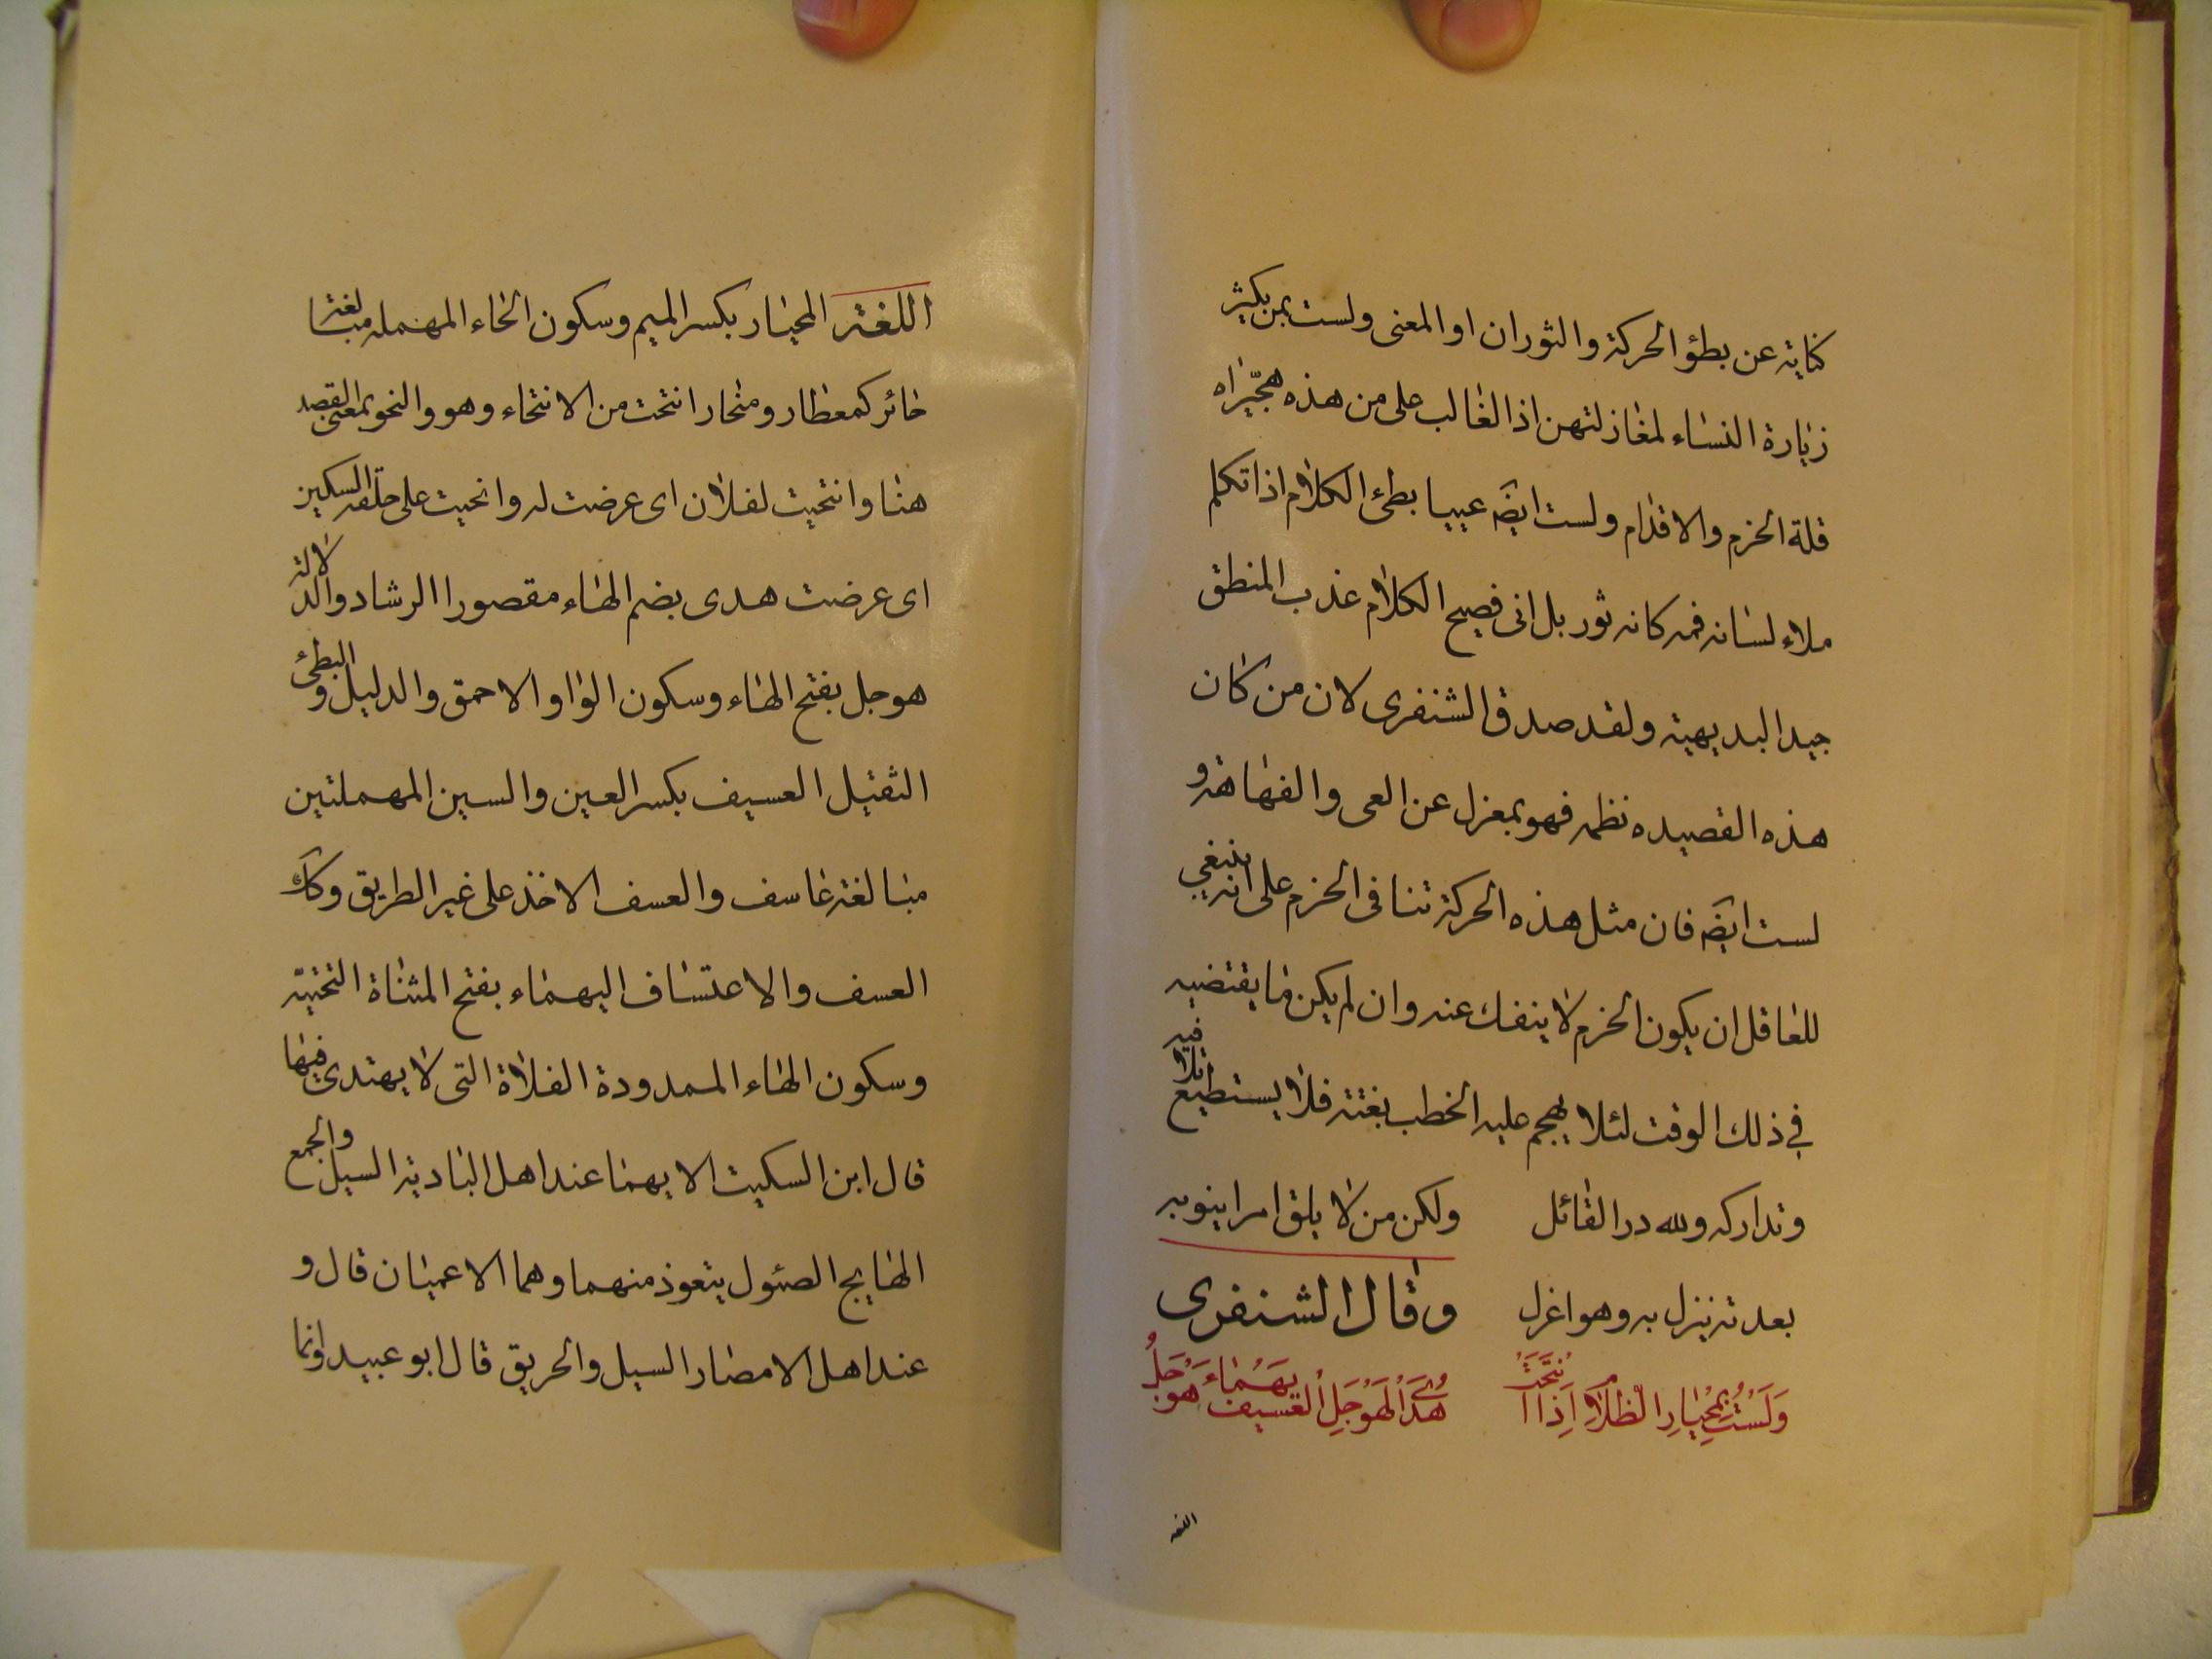 كناية عن بطؤ الحركة والثوران او المعنى ولست بمن يكثر
زيارة النساء لمغازلتهن اذ الغالب على من هذه هجّيراه
قلة الحزم والاقدام ولست ايضَ عييا بطئ الكلام اذا تكلم
ملاء لسانه فمه كانه ثور بل انى فصيح الكلام عذب المنطق
جيد البديهية ولقد صدق الشنفرى لان من كان
هذه القصيده نظمه فهو بمعزل عن العى والفهاهة و
لست ايضَ فان مثل هذه الحركة تنافى الحزم على انه ينبغي
للعاقل ان يكون الحزم لا ينفك عنه وان لم يكن ما يقتضيه
في ذلك الوقت لئلا يهجم عليه الخطب بغتة فلا يستطيع تلافيه
وتداركه ولله در القائل ولكن من لا يلق امرا ينوبه
بعدته ينزل به وهو اعزل وقال الشنفرى
وَلَسْتُ بِمِحْيٰارِ الظَّلاٰمِ اِذَا انْتَحَتْ هُدَى الْهَوْجَلِ الْعِسّيفِ يَهْمٰاءُ هَوْجَلُ
اللغة
اللغة المحيار بكسر الميم وسكون الحاء المهملة مبالغة
حائر كمعطار ومنحار انتحت من الانتحاء وهو والنحو بمعنى القصد
هنا وانتحيت لفلان اى عرضت له وانحيت على حلقه السكين
اى عرضت هدى بضم الهاء مقصورا الرشاد والدلالة
هوجل بفتح الهاء وسكون الواو الاحمق والدليل والبطئ
الثقيل العسيف بكسر العين والسين المهملتين
مبالغة عاسف والعسف الاخذ على غير الطريق وكك
العسف والاعتساف اليهماء بفتح المثناة التحتية
وسكون الهاء الممدودة الفلاة التى لا يهتدى فيها
قال ابن السكيت الايهما عند اهل البادية السيل والجمع
الهايج الصئول يتعوذ منهما وهما الاعميان قال و
عند اهل الامصار السيل والحريق قال ابو عبيد وانما